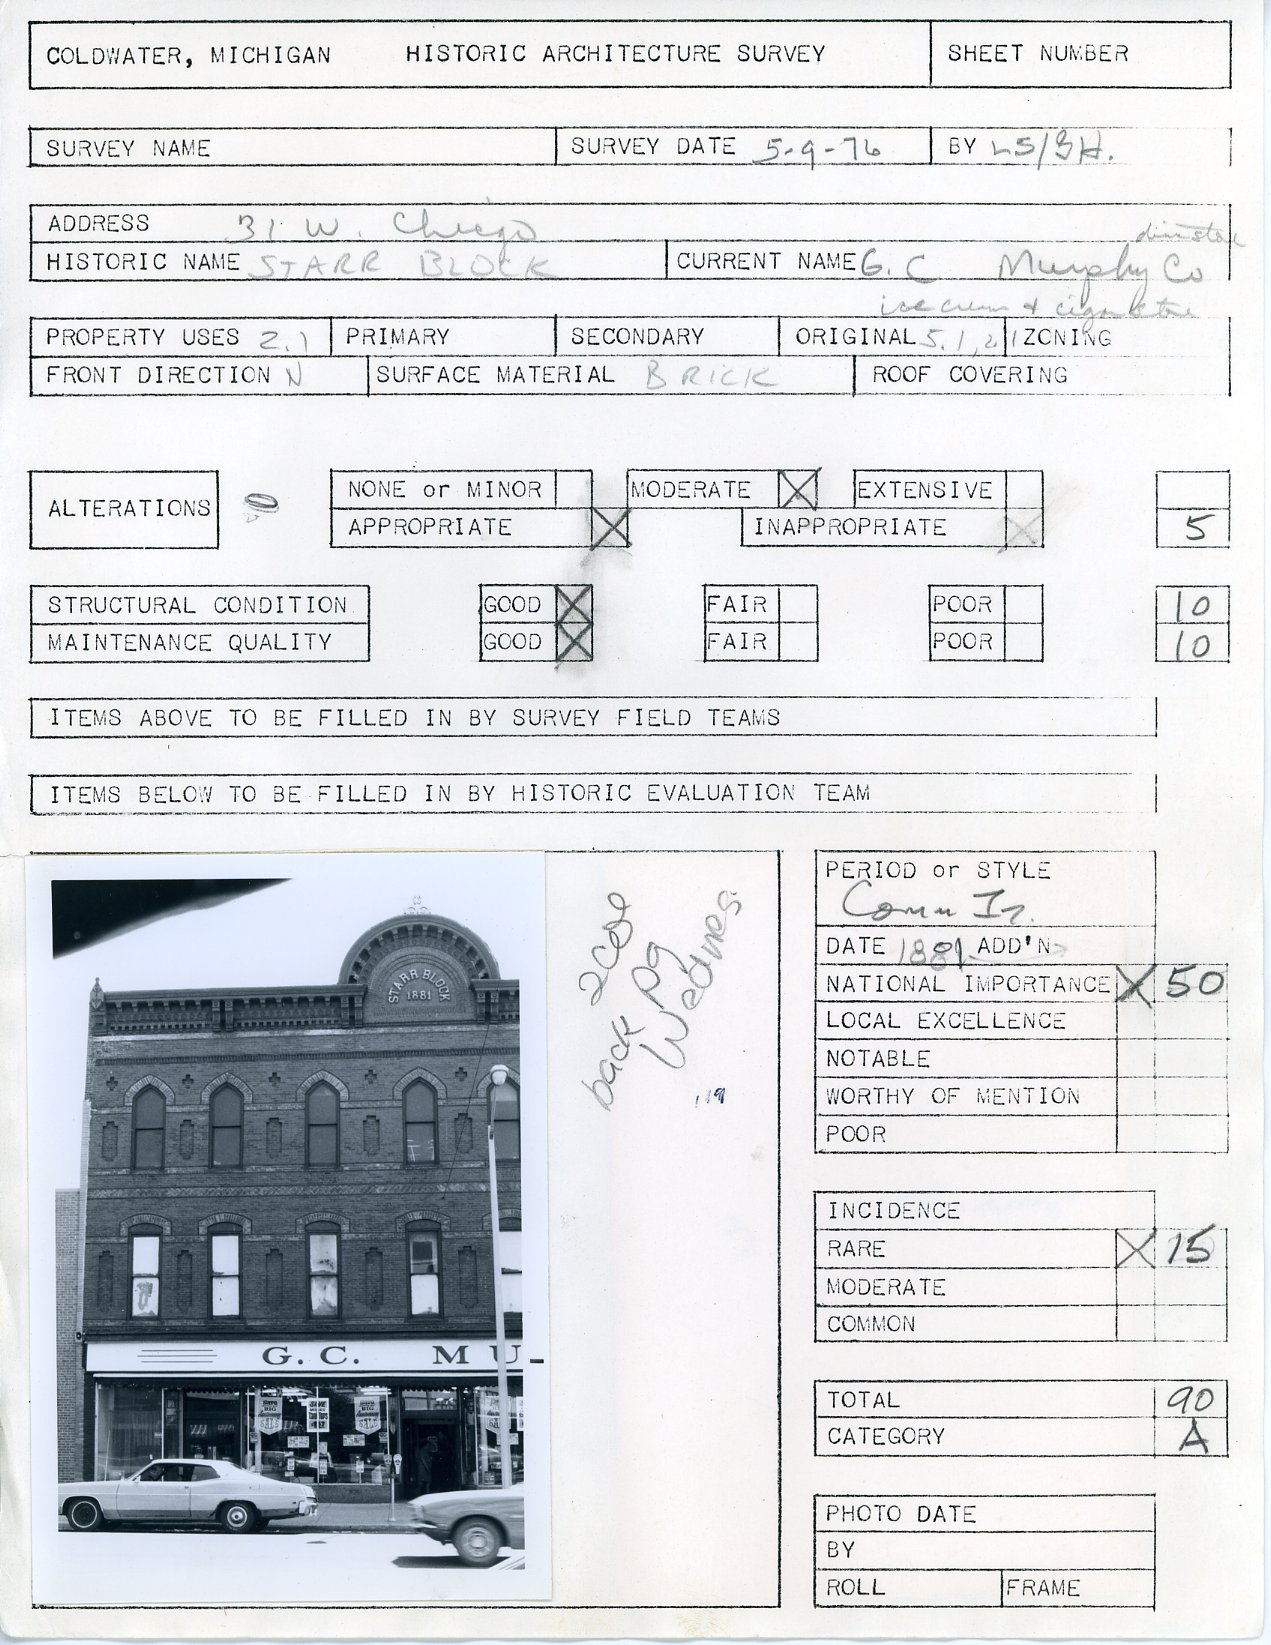 COLDWATER, MICHIGAN HISTORIC ARCHITECTURE SURVEY SHEET NUMBER
SURVEY NAME SURVEY DATE 5-9-76 BY LS/
ADDRESS 31 W. Chicago
dime store
HISTORIC NAME STARR BLOCK CURRENT NAME G. C Murphy Co
ice cream + cigar store
PROPERTY USES 2.1 PRIMARY SECONDARY ORIGINAL 5.1, 2.1 ZONING
FRONT DIRECTION N SURFACE MATERIAL BRICK ROOF COVERING
ALTERATIONS NONE or MINOR MODERATE X EXTENSIVE
APPROPRIATE X INAPPROPRIATE X 5
STRUCTURAL CONDITION GOOD X FAIR POOR 10
MAINTENANCE QUALITY GOOD X FAIR POOR 10
ITEMS ABOVE TO BE FILLED IN BY SURVEY FIELD TEAMS
ITEMS BELOW TO BE FILLED IN BY HISTORIC EVALUATION TEAM
STARR BLOCK
1881
G. C. MU
BIG
BIG
back pg
PERIOD or STYLE
Comm
DATE 1881 ADD'N
NATIONAL IMPORTANCE X 50
LOCAL EXCELLENCE
NOTABLE
WORTHY OF MENTION
POOR
INCIDENCE
RARE X 15
MODERATE
COMMON
TOTAL 90
CATEGORY A
PHOTO DATE
BY
ROLL FRAME